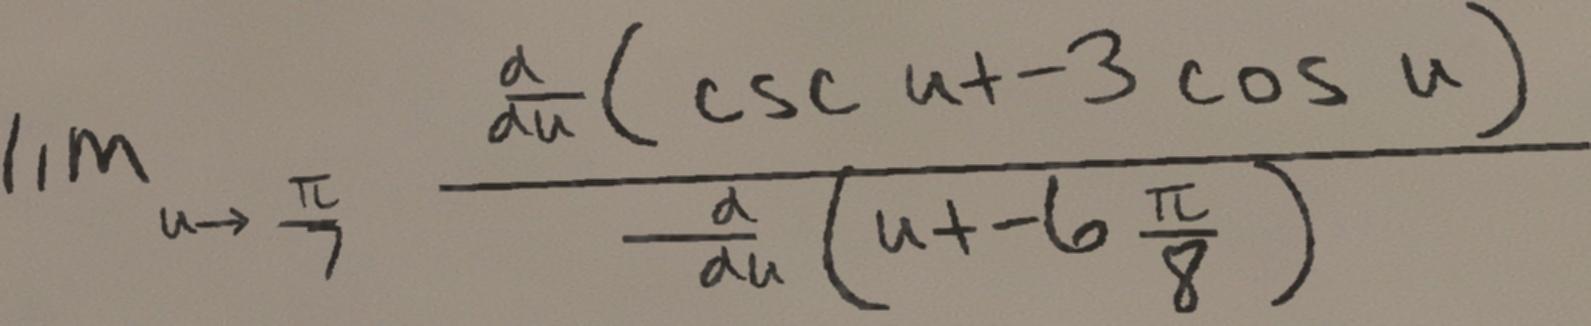 \lim_{u \to \frac{\pi}{7}} \frac{\frac{d}{du}(\csc u + -3 \cos u)}{\frac{d}{du}(u + -6 \frac{\pi}{8})}